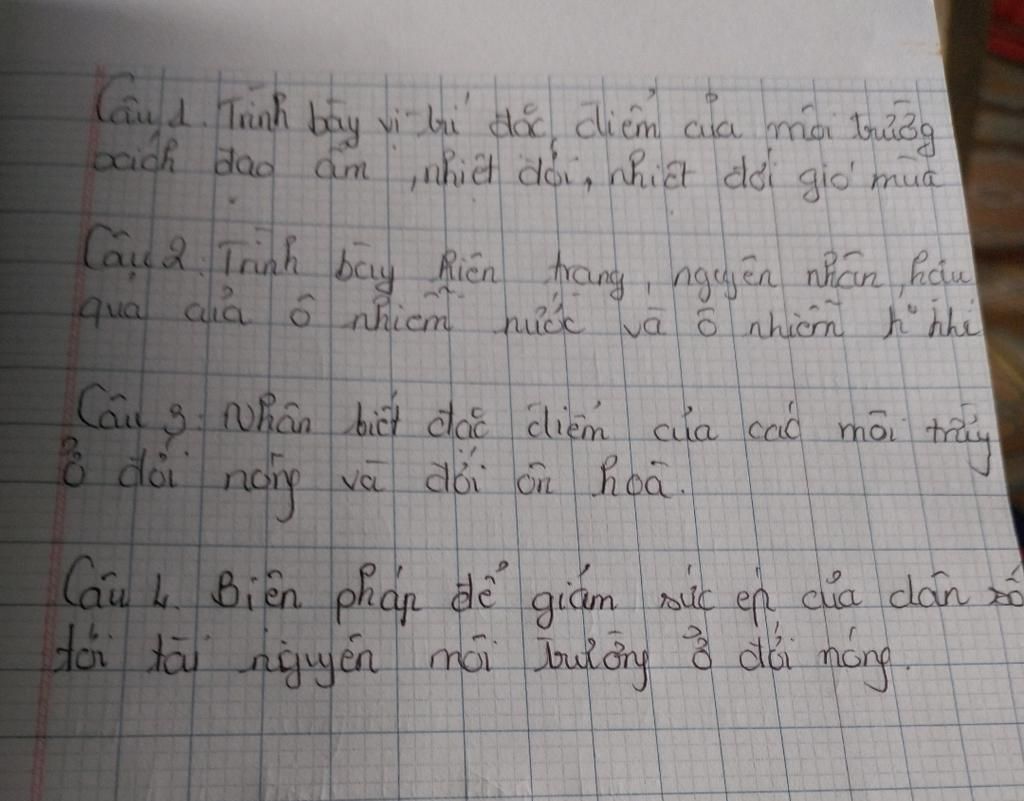 Câu 1. Trình bày vị trí đặc điểm của môi trường
xích đạo ẩm, nhiệt đới, nhiệt đới gió mùa
Câu 2. Trình bày hiện trạng, nguyên nhân, hậu
quả của ô nhiễm nước và ô nhiễm k° khí
Câu 3: Nhận biết đặc điểm của các môi trường
ở đới nóng và đới ôn hoà.
Câu 4. Biện pháp để giảm sức ép của dân số
tới tài nguyên môi trường ở đới nóng.